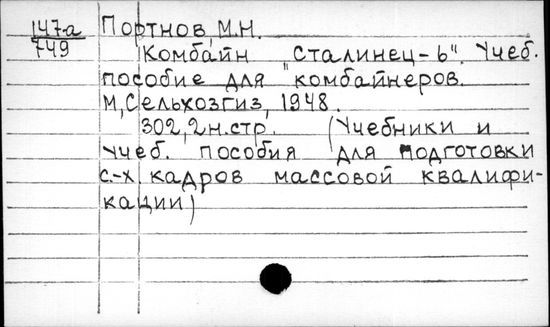 147-а Портнов, М.Н.
749 Комбайн „Сталинец-6". Учеб.
пособие для комбайнеров.
М, Сельхозгиз, 1948.
302, 2 н.стр. (Учебники и
учеб. пособия для подготовки
с-х кадров массовой квалифи-
кации)